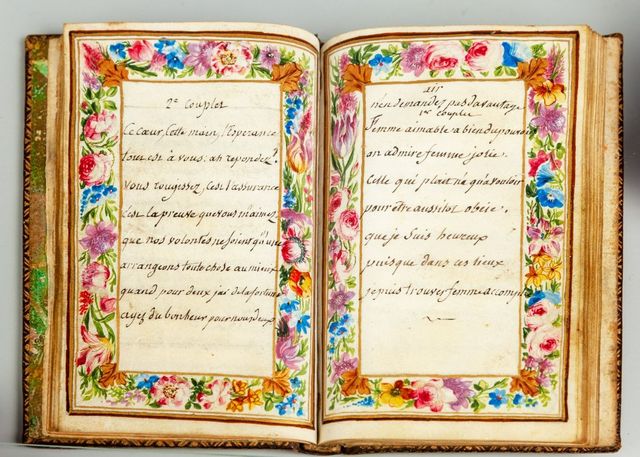 2e Couplet
Ce Cœur, Cette main, l'Esperance
tout est à vous. ah repondez?
vous rougissez, c'est l'assurance
c'est la preuve que vous m'aimez
que nos volontes ne soient qu'une
arrangeons toute chose au mieux
quand pour deux j'ai de la fortune
ayez du bonheur pour nous deux
air
n'en demandez pas davantage
1er couplet
Femme aimable a bien du pouvoir
on admire femme jolie.
Celle qui plait n'a qu'a vouloir
pour être aussitot obeie.
que je suis heureux
puisque dans ces lieux
je puis trouver femme accomplie